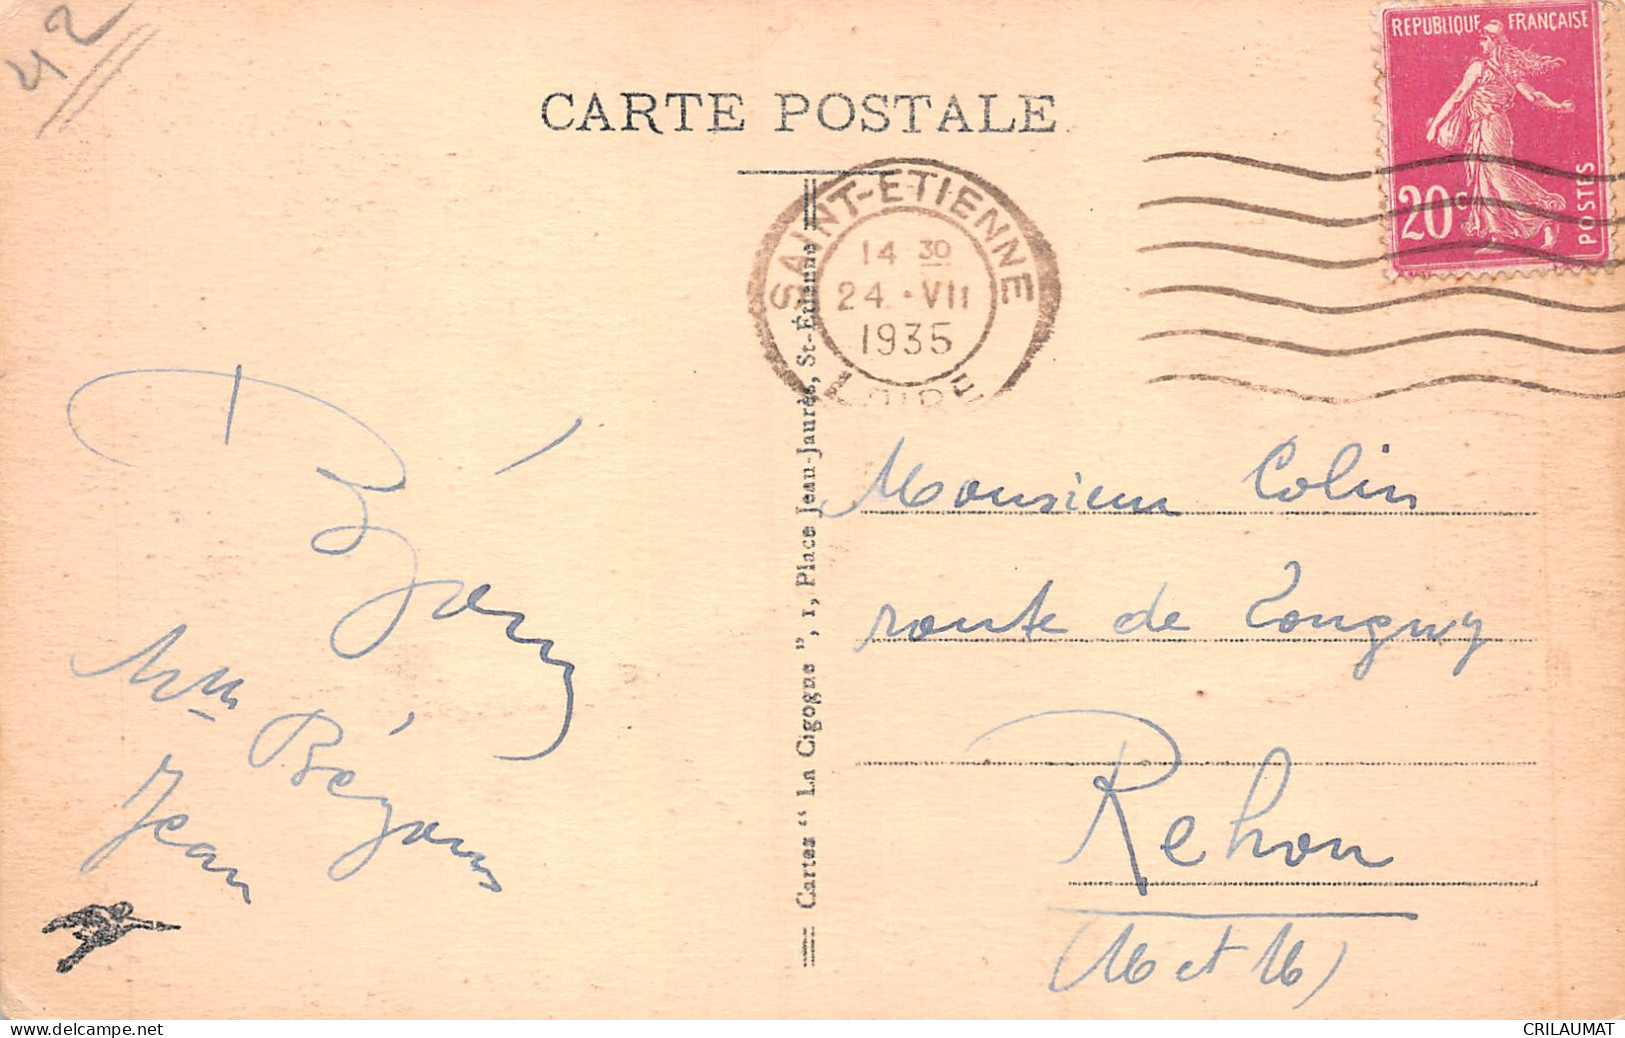 42
CARTE POSTALE
REPUBLIQUE FRANÇAISE
20c
POSTES
SAINT-ETIENNE
14 30
24 · VII
1935
LOIRE
Cartes “ La Cigogne ”, 1, Place Jean-Jaurès, St-Étienne
Monsieur Colin
route de Longwy
Rehon
(M et M)
Mme
Jean
CRILAUMAT